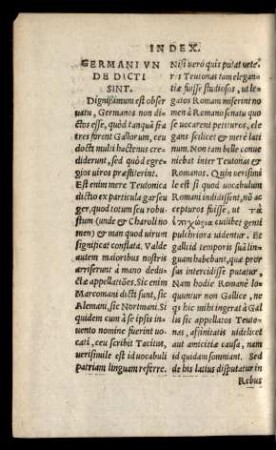 INDEX.
GERMANI VN
DE DICTI
SINT.
Dignissimum est obser
uatu, Germanos non di
ctos esse, quòd tanquã fra
tres forent Gallorum, ceu
docti multi hactenus cre
diderunt, sed quòd egre
gios uiros præstiterint.
Est enim mere Teutonica
dictio ex particula gar seu
ger, quod totum seu robu
stum (unde & Charoli no
men) & man quod uirum
significat conflata. Valde
autem maioribus nostris
arriserunt à mano deduc
tæ appellatiões, Sic enim
Marcomani dicti sunt, sic
Alemani, sic Nortmani. Si
quidem cum à se ipsis in
uento nomine fuerint uo
cati, ceu scribit Tacitus,
uerisimile est id uocabuli
patriam linguam referre.
Nisi uerò quis putat uete
res Teutonas tam elegan
tiæ fuisse studiosos, ut le
gatos Romam miserint no
men à Romano senatu quo
se uocarent petituros, ele
gans scilicet & mere lati
num. Non tam belle conue
niebat inter Teutonas &
Romanos. Quin uerisimi
le est si quod uocabulum
Romani indidissent, nõ ac
cepturos fuisse, ut
cuilibet genti
pulchriora uidentur. Et
galliçd temporis suã lin
guam habebant, quæ pror
sus intercidisse putatur,
Nam hodie Romanè lo
quuntur non Gallice, ne
qs hic mihi ingerat à Gal
lis sic appellatos Teuto
nas, affinitatis uidelicet
aut amicitiæ causa, nam
id quidam somniant. Sed
de his latius disputatur in
Rebus